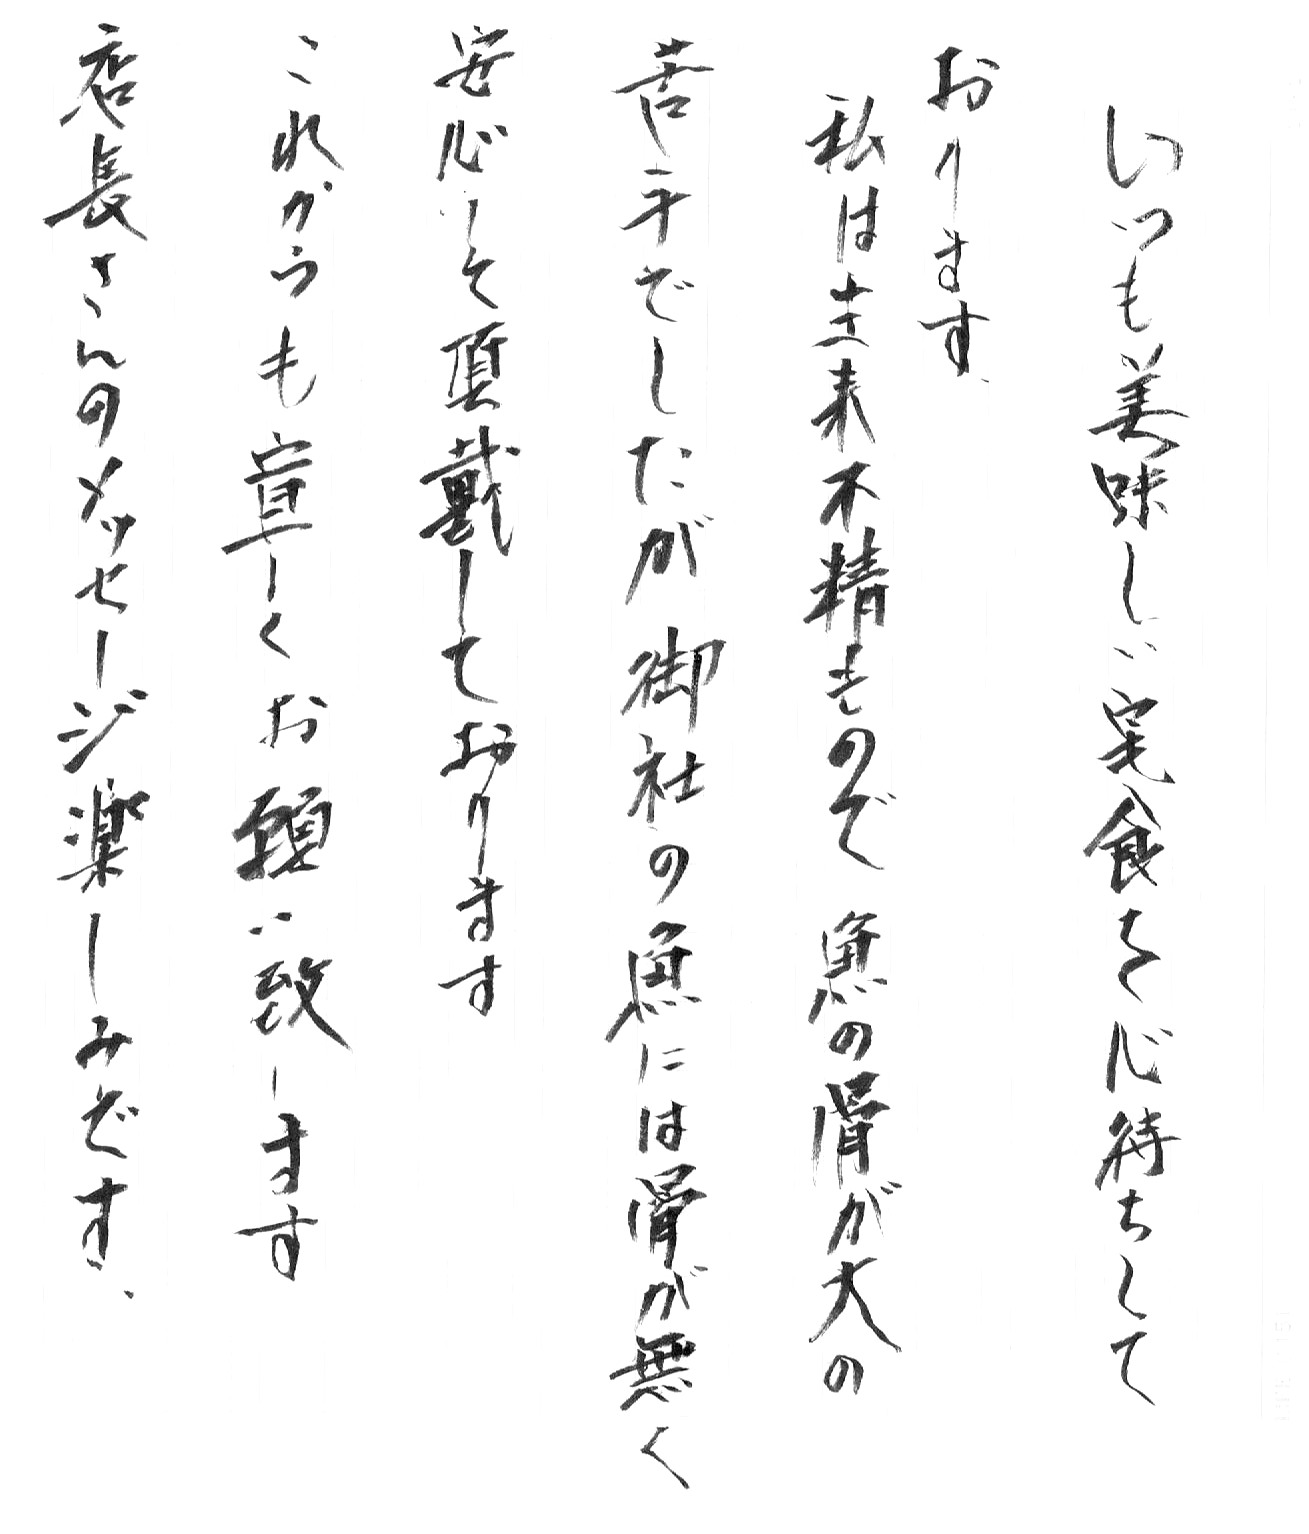 いつも美味しい宅食を心待ちして
おります。
私は生来不精もので魚の骨が大の
苦手でしたが御社の魚には骨が無く
安心して頂戴しております
これからも宜しくお願い致します
店長さんのメッセージ楽しみです、